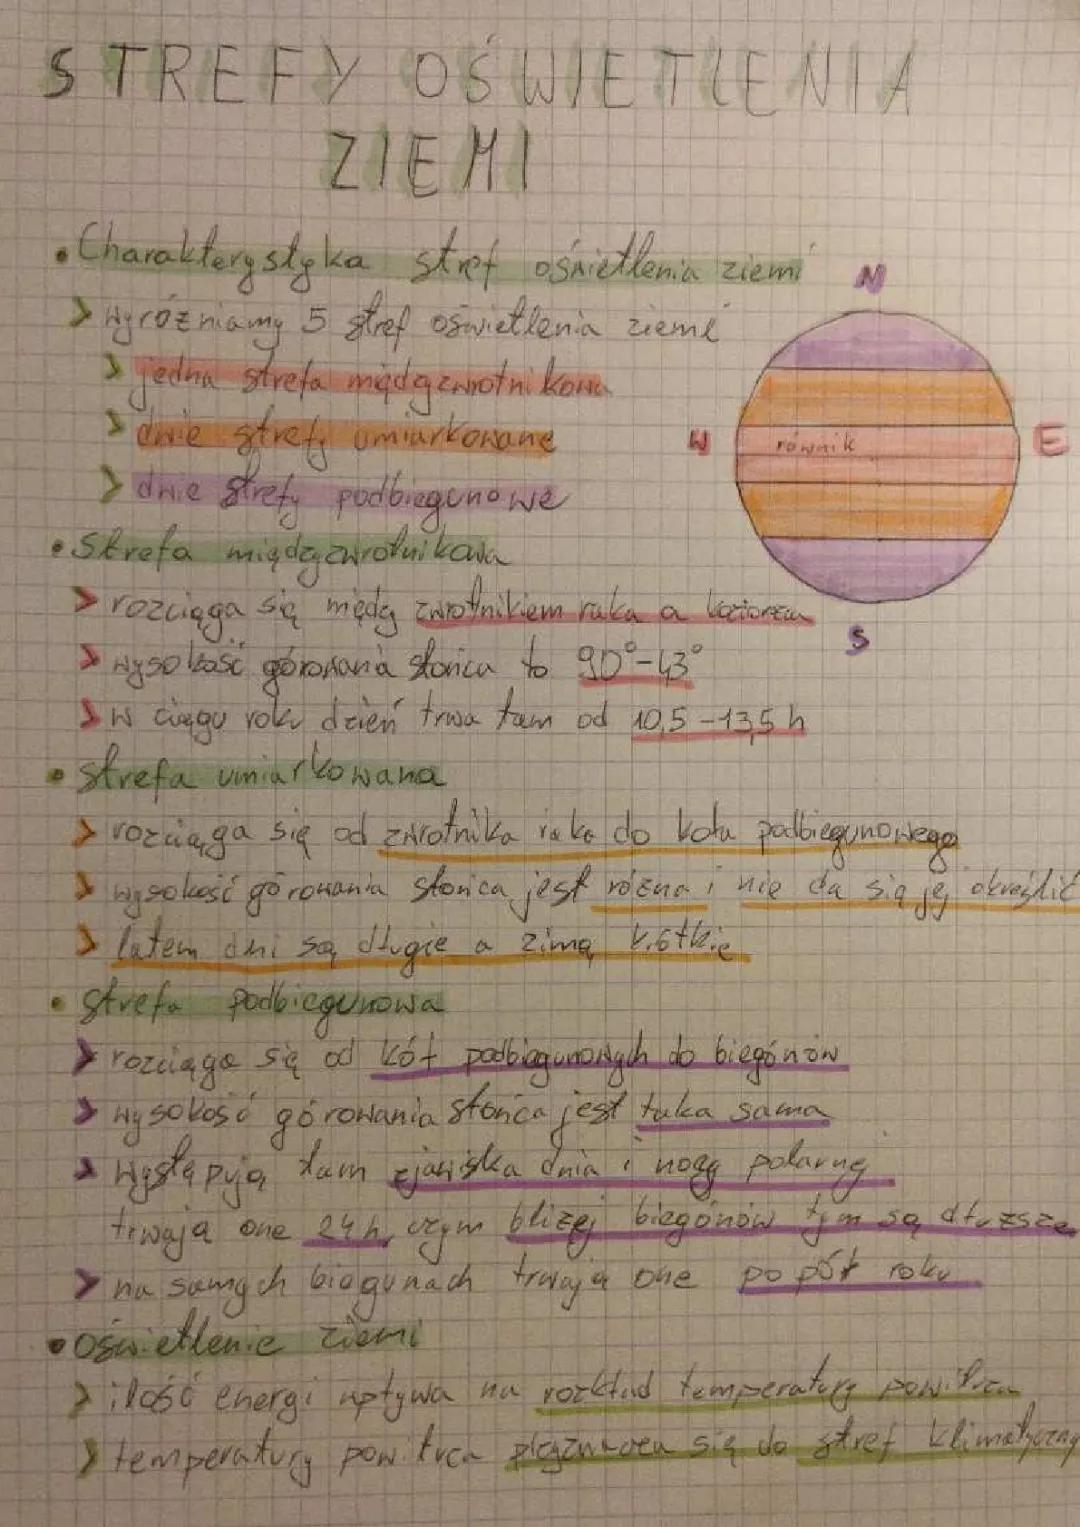 STREFY OŚWIETLENIA
ZIEMI
• Charakterystyka stref oświetlenia ziemi
> wyróżniamy 5 stref oświetlenia ziemi
> jedna strefa międzyzwrotnikowa
> dwie strefy umiarkowane
> dwie strefy podbiegunowe
N
W
równik
E
S
• Strefa międzyzwrotnikowa
> rozciąga się między zwrotnikiem raka a koziorożca
> wysokość górowania słońca to 90°-43°
> w ciągu roku dzień trwa tam od 10,5-13,5 h
• strefa umiarkowana
> rozciąga się od zwrotnika raka do koła podbiegunowego
> wysokość górowania słońca jest różna i nie da się jej określić
> latem dni są długie a zimą krótkie
• strefa podbiegunowa
> rozciąga się od kół podbiegunowych do biegónów
> wysokość górowania słońca jest taka sama
> występują tam zjawiska dnia i nocy polarnej
trwają one 24h, czym bliżej biegónów tym są dłuższe
> na samych biegunach trwają one po pół roku
• oświetlenie ziemi
> ilość energi wpływa na rozkład temperatury powietrza
> temperatury powitrza się do stref klimatyczny